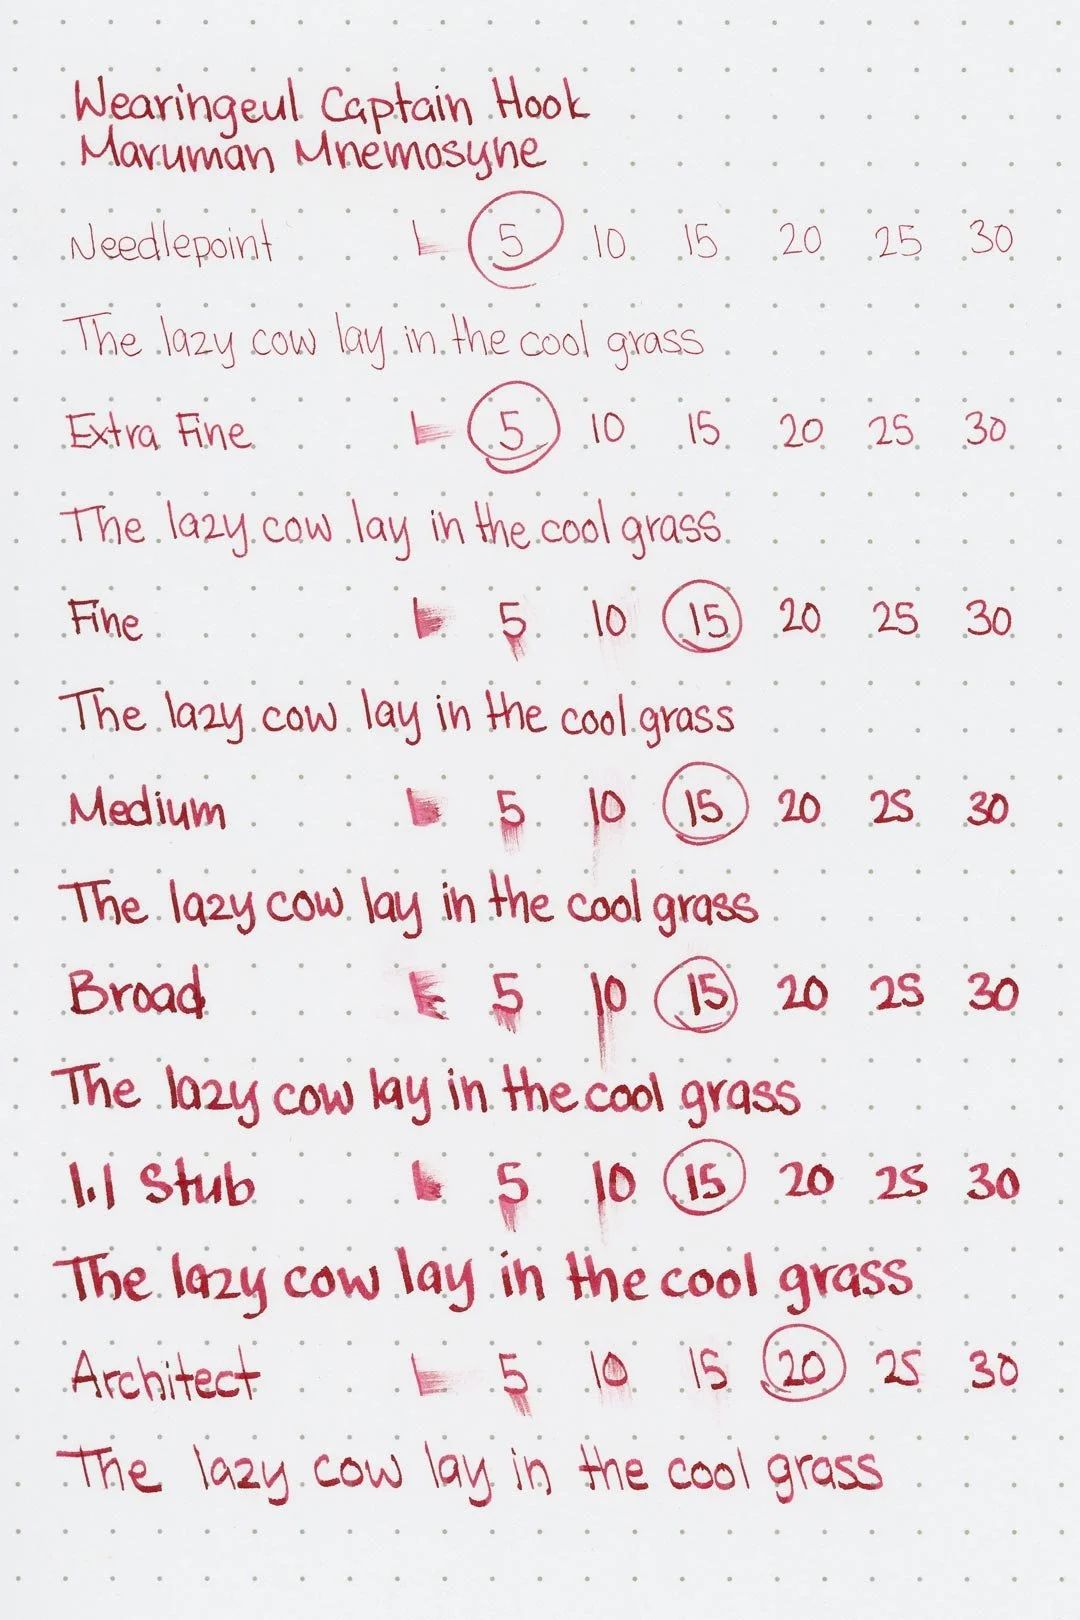 Wearingeul Captain Hook
Maruman Mnemosyne
Needlepoint L 5 10 15 20 25 30
The lazy cow lay in the cool grass
Extra Fine L 5 10 15 20 25 30
The lazy cow lay in the cool grass
Fine L 5 10 15 20 25 30
The lazy cow lay in the cool grass
Medium L 5 10 15 20 25 30
The lazy cow lay in the cool grass
Broad L 5 10 15 20 25 30
The lazy cow lay in the cool grass
1.1 Stub L 5 10 15 20 25 30
The lazy cow lay in the cool grass
Architect L 5 10 15 20 25 30
The lazy cow lay in the cool grass